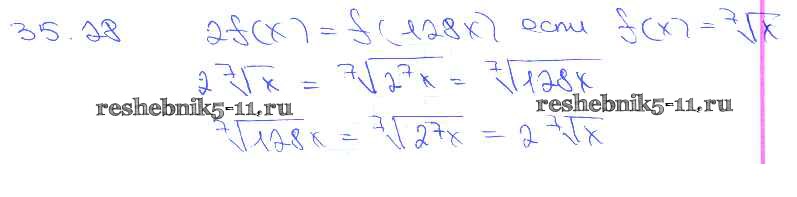 35.28 2f(x) = f(128x) если f(x) = ⁷√x
2 ⁷√x = ⁷√2⁷x = ⁷√128x
reshebnik5-11.ru reshebnik5-11.ru
⁷√128x = ⁷√2⁷x = 2 ⁷√x